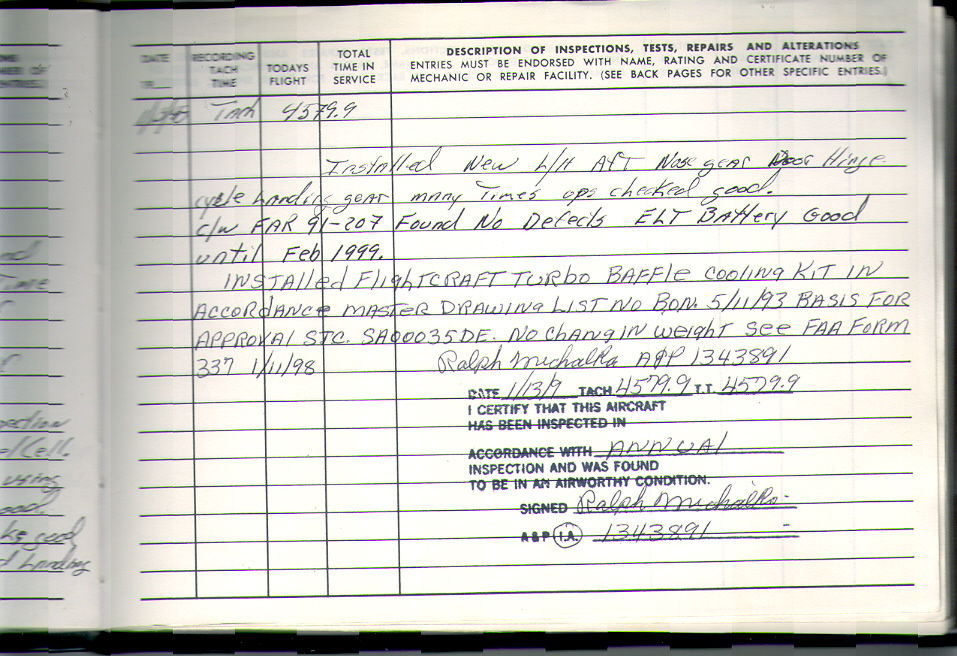 DATE
RECORDING TACH TIME
TODAYS FLIGHT
TOTAL TIME IN SERVICE
DESCRIPTION OF INSPECTIONS, TESTS, REPAIRS AND ALTERATIONS
ENTRIES MUST BE ENDORSED WITH NAME, RATING AND CERTIFICATE NUMBER OF
MECHANIC OR REPAIR FACILITY. (SEE BACK PAGES FOR OTHER SPECIFIC ENTRIES.)
Tach 4579.9
Installed New L/H Aft Nose gear Door Hinge
cycle Landing gear many Times ops checked good.
c/w FAR 91-207 Found No Defects ELT Battery Good
until Feb 1999.
INSTAlled FlightCRAFT TURBO BAFFle COOLING KIT IN
ACCORDANCE MASTER DRAWING LIST NO BDN. 5/11/93 BASIS FOR
APPROVAl STC. SA00035DE. NO CHANG IN WEIGHT See FAA FORM
337 1/11/98 Ralph Michalko A&P 1343891
DATE 1/13/9 TACH 4579.9 T.T. 4579.9
I CERTIFY THAT THIS AIRCRAFT
HAS BEEN INSPECTED IN
ACCORDANCE WITH ANNUAl
INSPECTION AND WAS FOUND
TO BE IN AN AIRWORTHY CONDITION.
SIGNED Ralph Michalko
A & P I.A. 1343891
Time
using
good